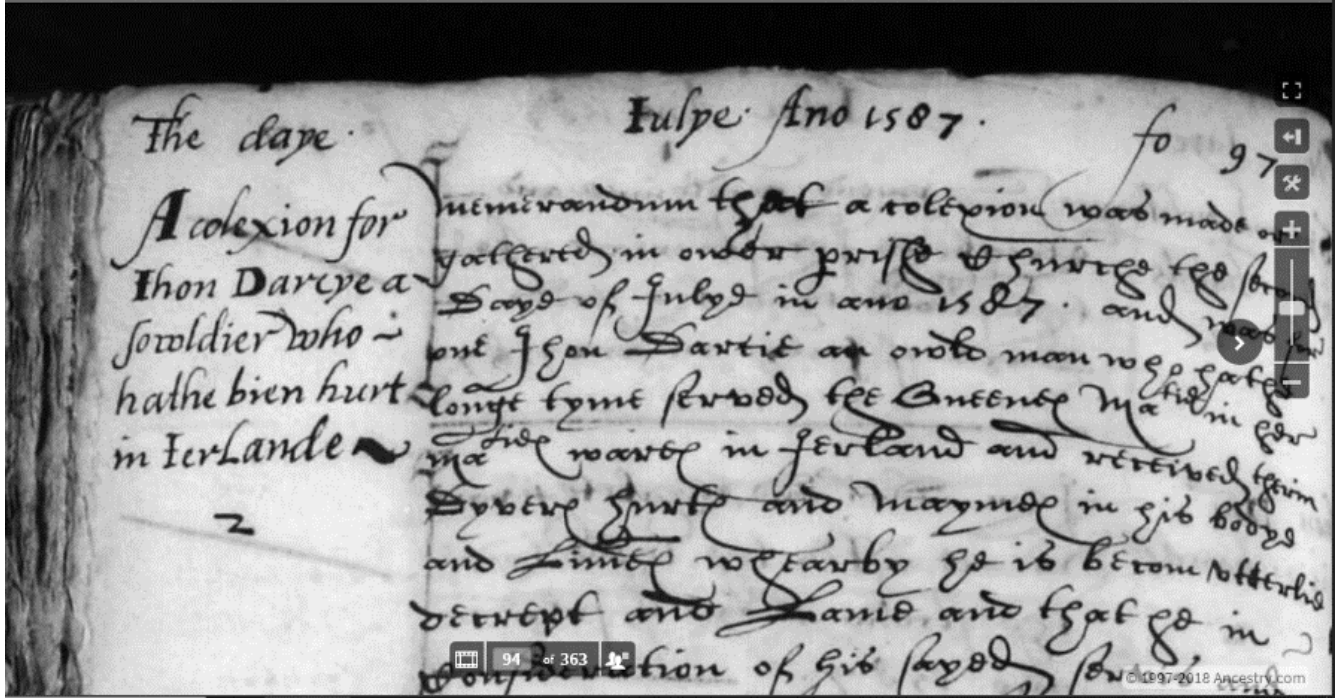 The daye.
Iulye. Ano 1587.
fo 97
A colexion for
Ihon Darcye a
sowldier who
hathe bien hurt
in IerLande
2
memerandum that a colexion was made or
gathered in ower prishe Churche the second
Daye of Julye in ano 1587. and was for
one Jhon Darcie an owld man who hathe
longe tyme served the Queenes Matie in her
maties wares in JerLand and received therin
Dyvers hurts and maymes in his bodye
and Limes whearby he is becom utterlie
decrept and Lame and that he in
Consideration of his sayed
94 of 363
© 1997-2018 Ancestry.com